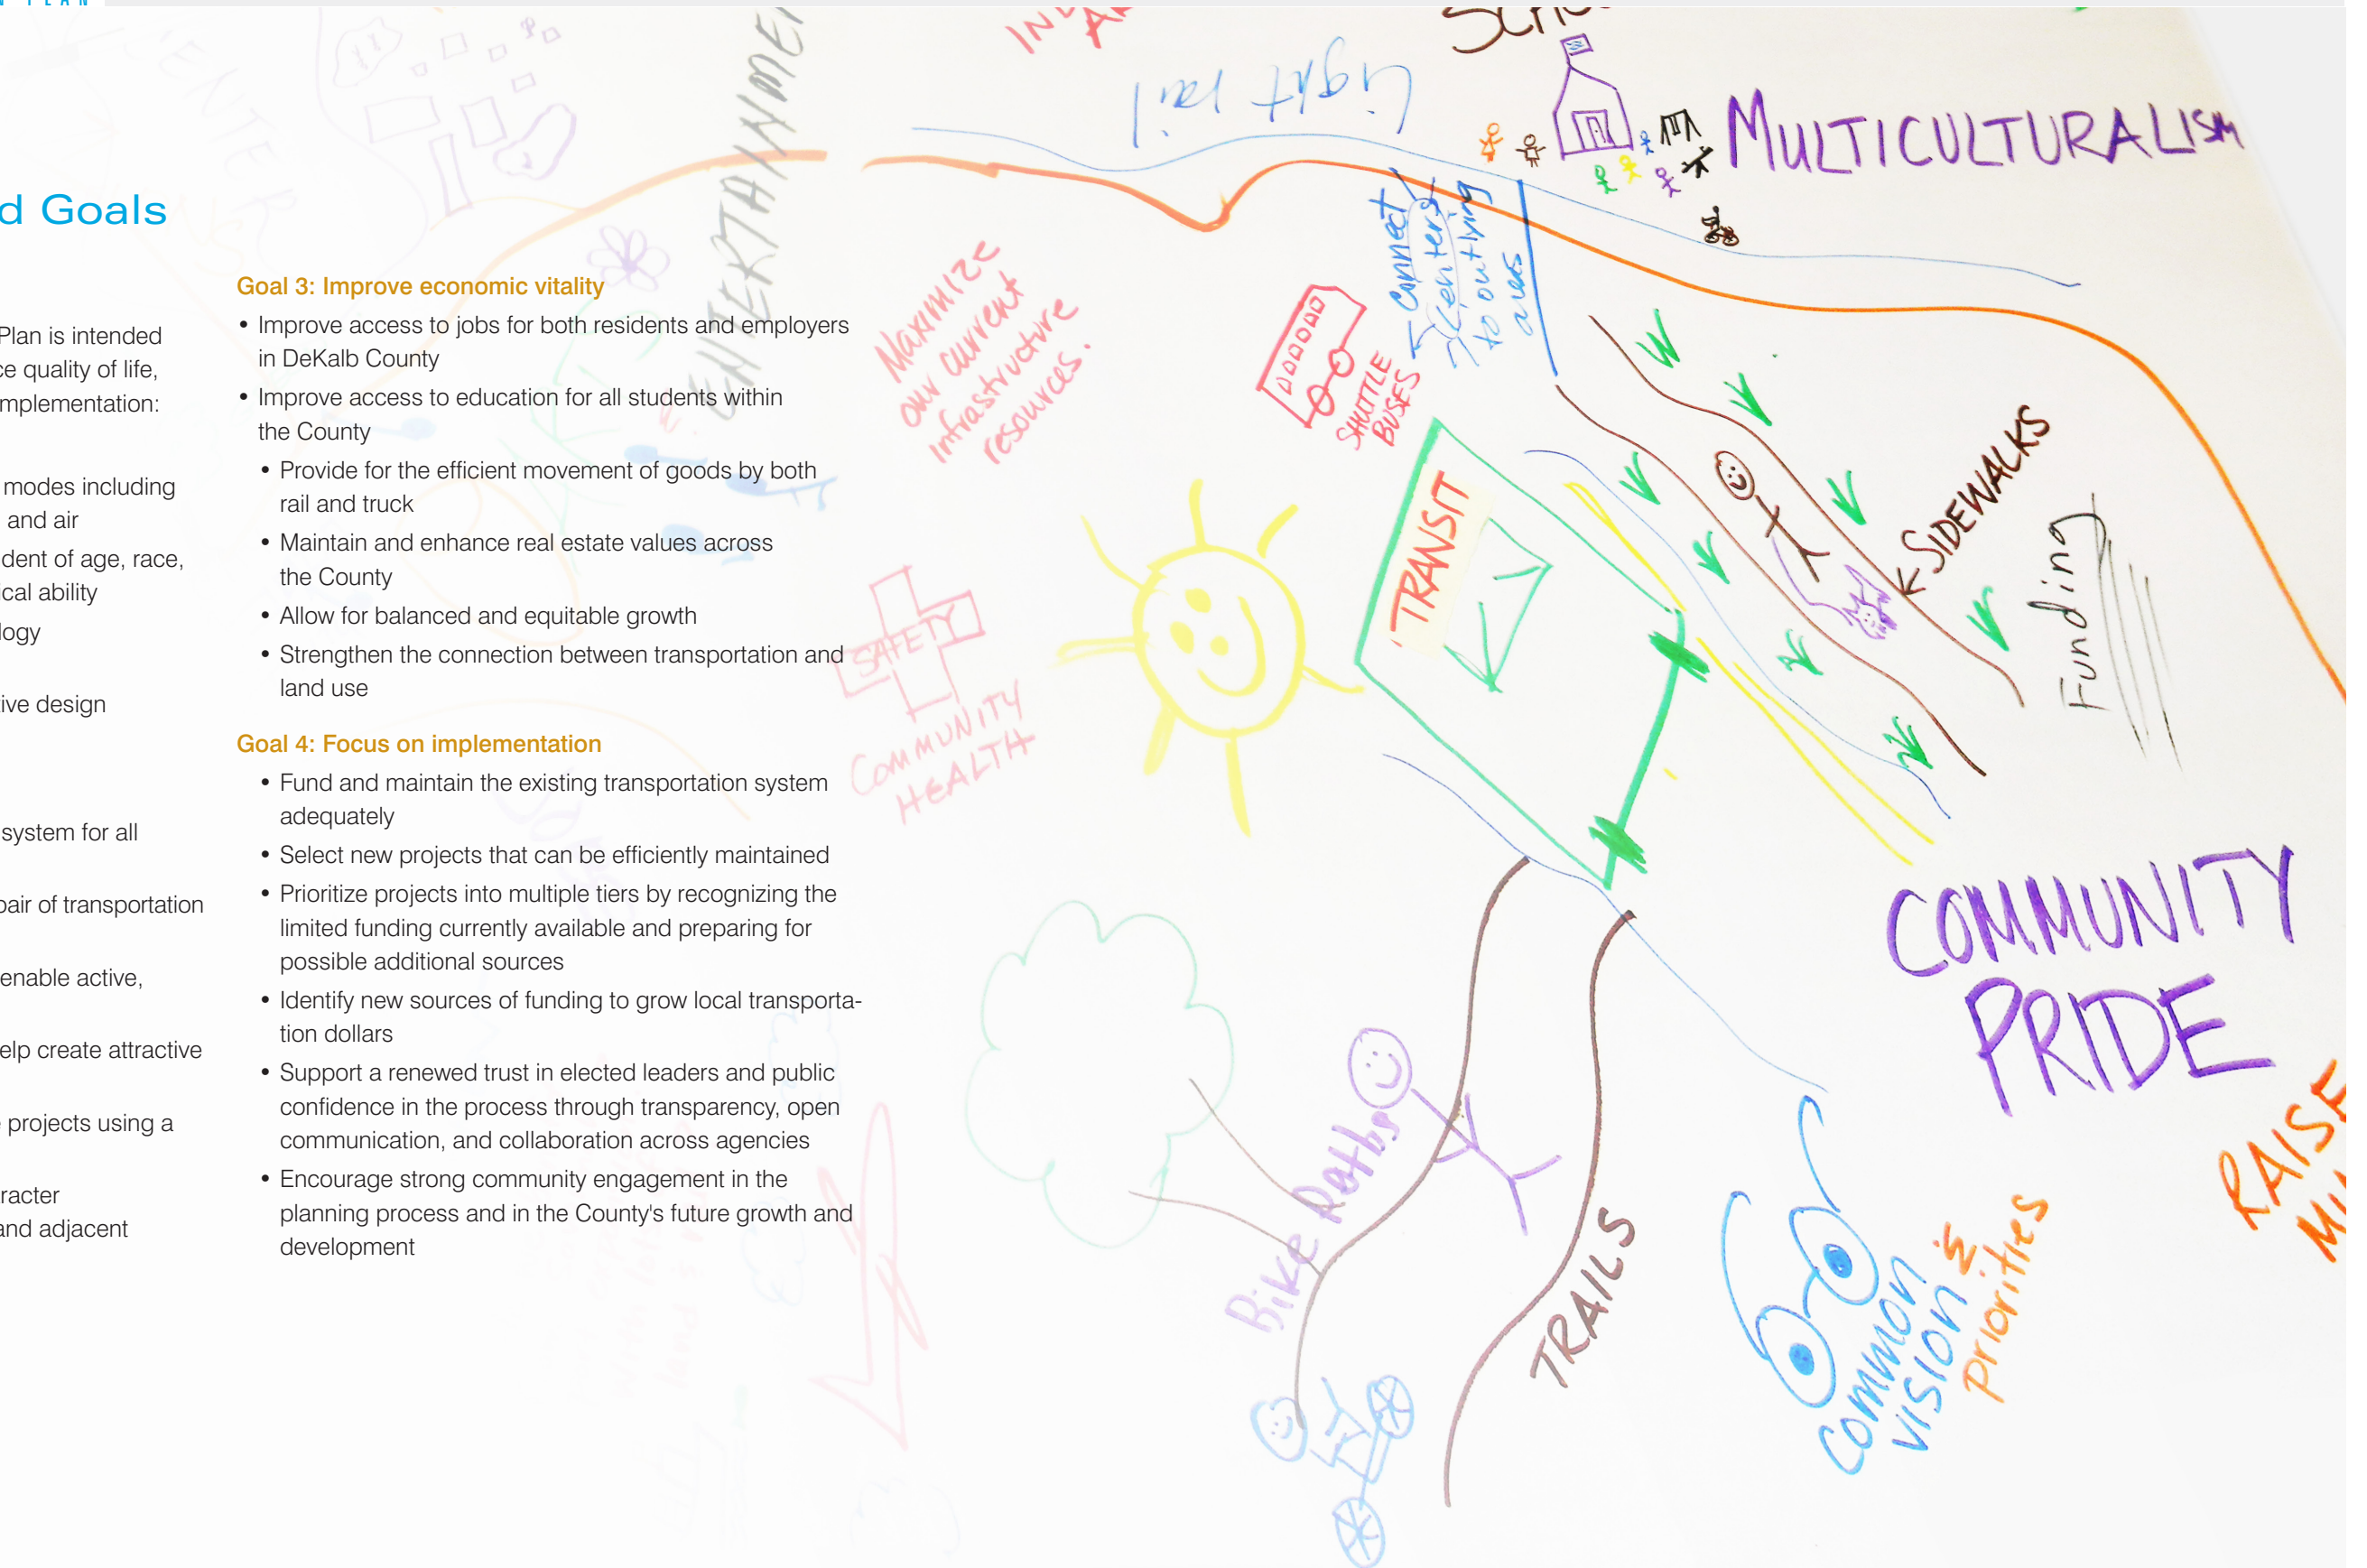 PLAN
d Goals
Plan is intended
ce quality of life,
mplementation:
modes including
and air
dent of age, race,
ical ability
logy
tive design
system for all
pair of transportation
enable active,
elp create attractive
projects using a
racter
and adjacent
Goal 3: Improve economic vitality
• Improve access to jobs for both residents and employers
in DeKalb County
• Improve access to education for all students within
the County
• Provide for the efficient movement of goods by both
rail and truck
• Maintain and enhance real estate values across
the County
• Allow for balanced and equitable growth
• Strengthen the connection between transportation and
land use
Goal 4: Focus on implementation
• Fund and maintain the existing transportation system
adequately
• Select new projects that can be efficiently maintained
• Prioritize projects into multiple tiers by recognizing the
limited funding currently available and preparing for
possible additional sources
• Identify new sources of funding to grow local transporta-
tion dollars
• Support a renewed trust in elected leaders and public
confidence in the process through transparency, open
communication, and collaboration across agencies
• Encourage strong community engagement in the
planning process and in the County's future growth and
development
CENTER
ENTERTAINMEN
Light rail
MULTICULTURALISM
Connect
Centers
to outlying
areas
Maximize
our current
infrastructure
resources.
SHUTTLE
BUSES
TRANSIT
SIDEWALKS
Funding
SAFETY
COMMUNITY
HEALTH
COMMUNITY
PRIDE
RAISE
Bike Paths
TRAILS
Common
Vision &
Priorities